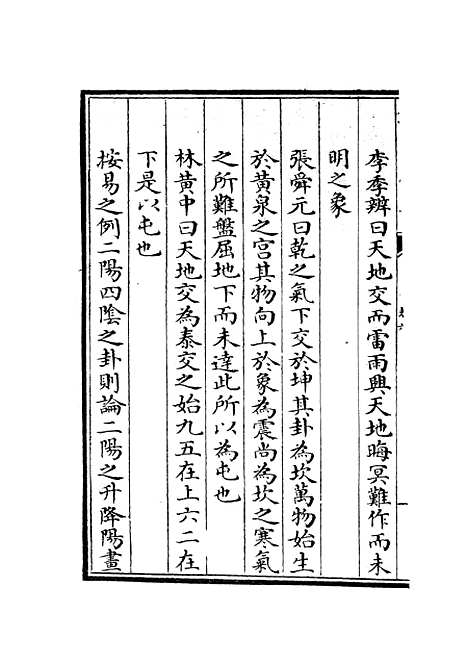 李季辨曰天地交而雷雨興天地晦冥難作而未
明之象
張舜元曰乾之氣下交於坤其卦為坎萬物始生
於黃泉之宫其物向上於象為震尚為坎之寒氣
之所難盤屈地下而未達此所以為屯也
林黃中曰天地交為泰交之始九五在上六二在
下是以屯也
按易之例二陽四陰之卦則論二陽之升降陽畫